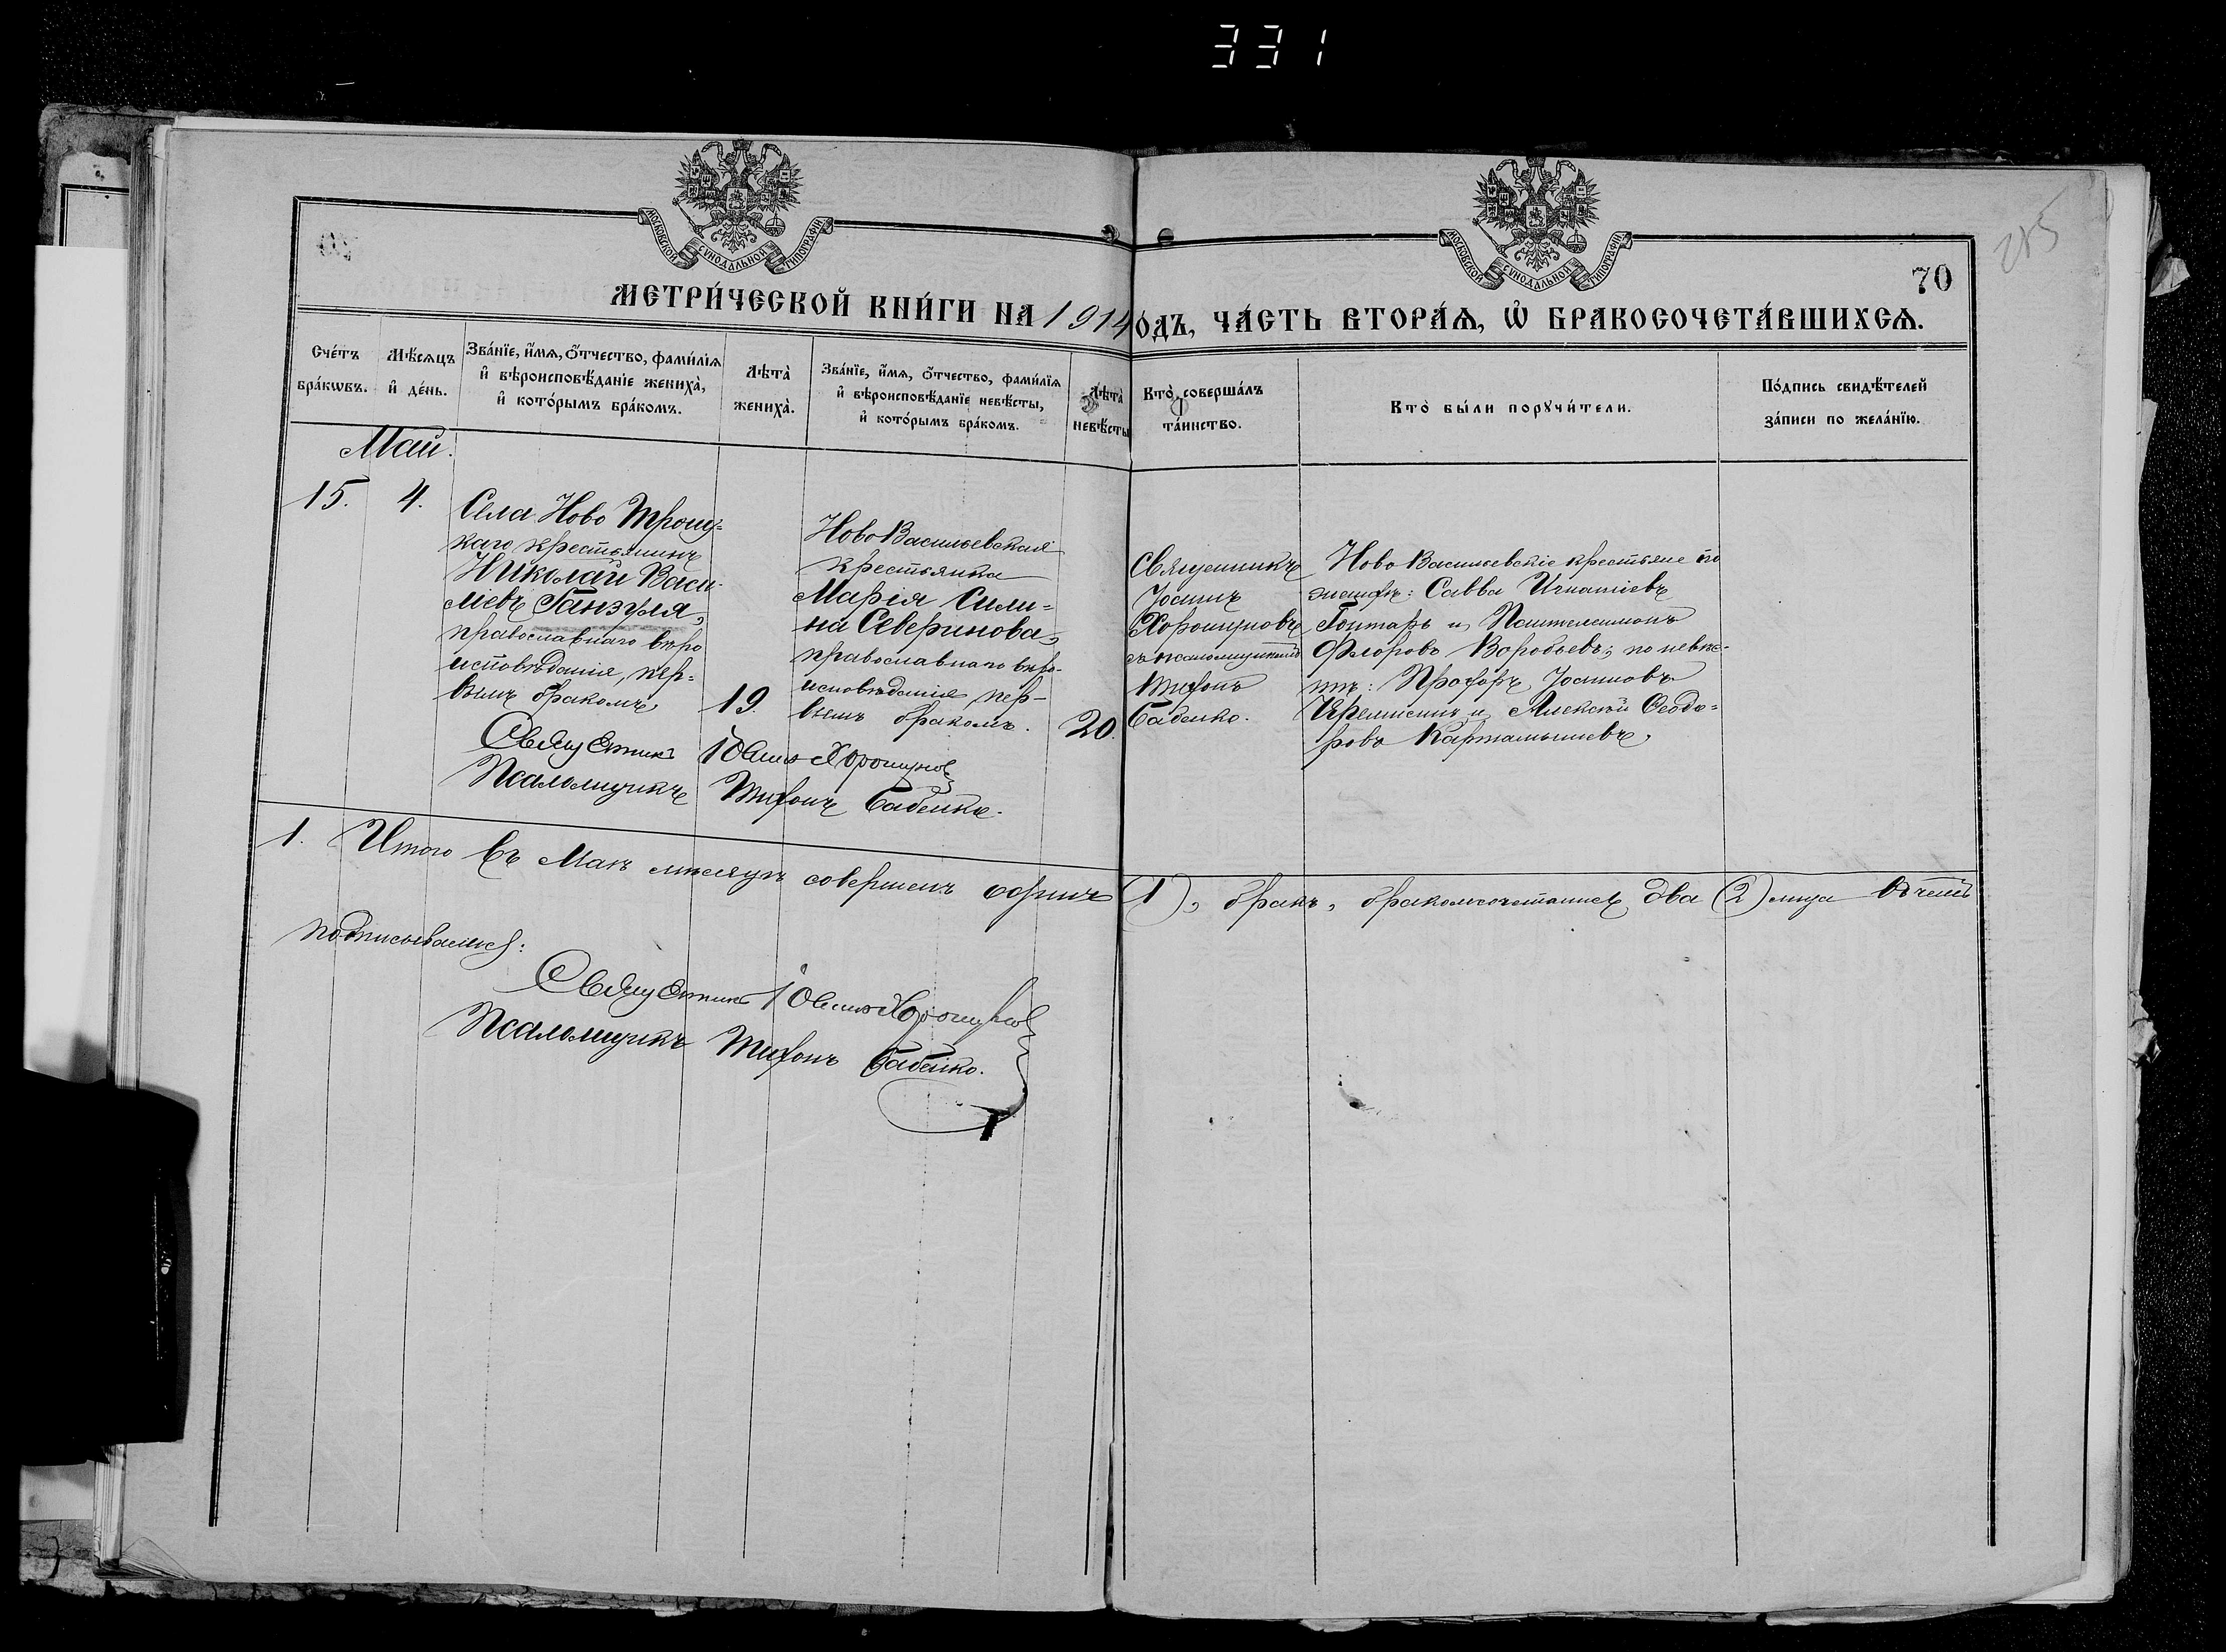 331
МОСКОВСКОЙ СѴНОДАЛЬНОЙ ТИПОГРАФІИ
МОСКОВСКОЙ СѴНОДАЛЬНОЙ ТИПОГРАФІИ
70
МЕТРИ́ЧЕСКОЙ КНИ́ГИ НА 1914 О́ДЪ, ЧА́СТЬ ВТОРА́Ѧ, Ѡ҆ БРАКОСОЧЕТА́ВШИХСѦ.
Сче́тъ бра́кѡвъ.
Мѣ́сѧцъ и҆ де́нь.
Зва́нїе, и҆́мѧ, ѻ҆́тчество, фами́лїѧ
и҆ вѣроисповѣ́данїе жениха̀,
и҆ кото́рымъ бра́комъ.
Лѣта̀ жениха̀.
Зва́нїе, и҆́мѧ, ѻ҆́тчество, фами́лїѧ
и҆ вѣроисповѣ́данїе невѣ́сты,
и҆ кото́рымъ бра́комъ.
Лѣта̀ невѣ́сты
Кто̀ соверша́лъ
та́инство.
Кто̀ бы́ли порꙋчи́тели.
По́дпись свидѣ́телей
за́писи по жела́нїю.
Май.
15.
4.
Села Ново Троиц=
каго крестьянинъ
Николай Васи-
льевъ Ганзуля,
православнаго вѣро
исповѣданія, пер=
вымъ бракомъ,
19.
Ново Васильевская
крестьянка
Марія Сили=
на Северинова,
православнаго вѣро-
исповѣданія, пер-
вымъ бракомъ.
20.
Священникъ
Іоаннъ
Хорошуновъ
съ псаломщикомъ
Тихонъ
Бабенко.
Ново Васильевскіе крестьяне по
жениху: Савва Игнатіевъ
Гонтарь и Пантелеимонъ
Флорово Воробьевъ; по невѣс-
тѣ: Прохоръ Іоанновъ
и Алексѣй Ѳеодо=
ровъ Картамышевъ,
Священникъ Іоаннъ Хорошунов
Псаломщикъ Тихонъ Бабенко.
1. Итого въ Маѣ мѣсяцѣ совершенъ одинъ (1), бракъ, бракомъ два (2) лица въ чемъ
подписываемся:
Священникъ Іоаннъ Хорошунов
Псаломщикъ Тихонъ Бабенко.